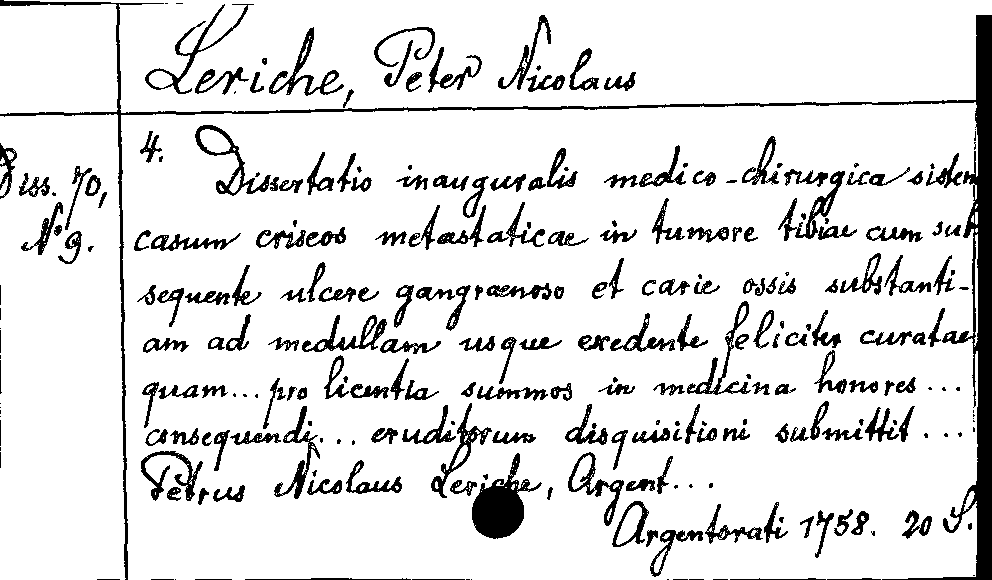 Leriche, Peter Nicolaus
Diss. 70,
N° 9.
4.
Dissertatio inauguralis medico-chirurgica sisten
casum criseos metastaticae in tumore tibiae cum sub
sequente ulcere gangraenoso et carie ossis substanti-
am ad medullam usque exedente feliciter curatae,
quam... pro licentia summos in medicina honores...
consequendi... eruditorum disquisitioni submittit...
Petrus Nicolaus Leriche, Argent...
Argentorati 1758. 20 S.